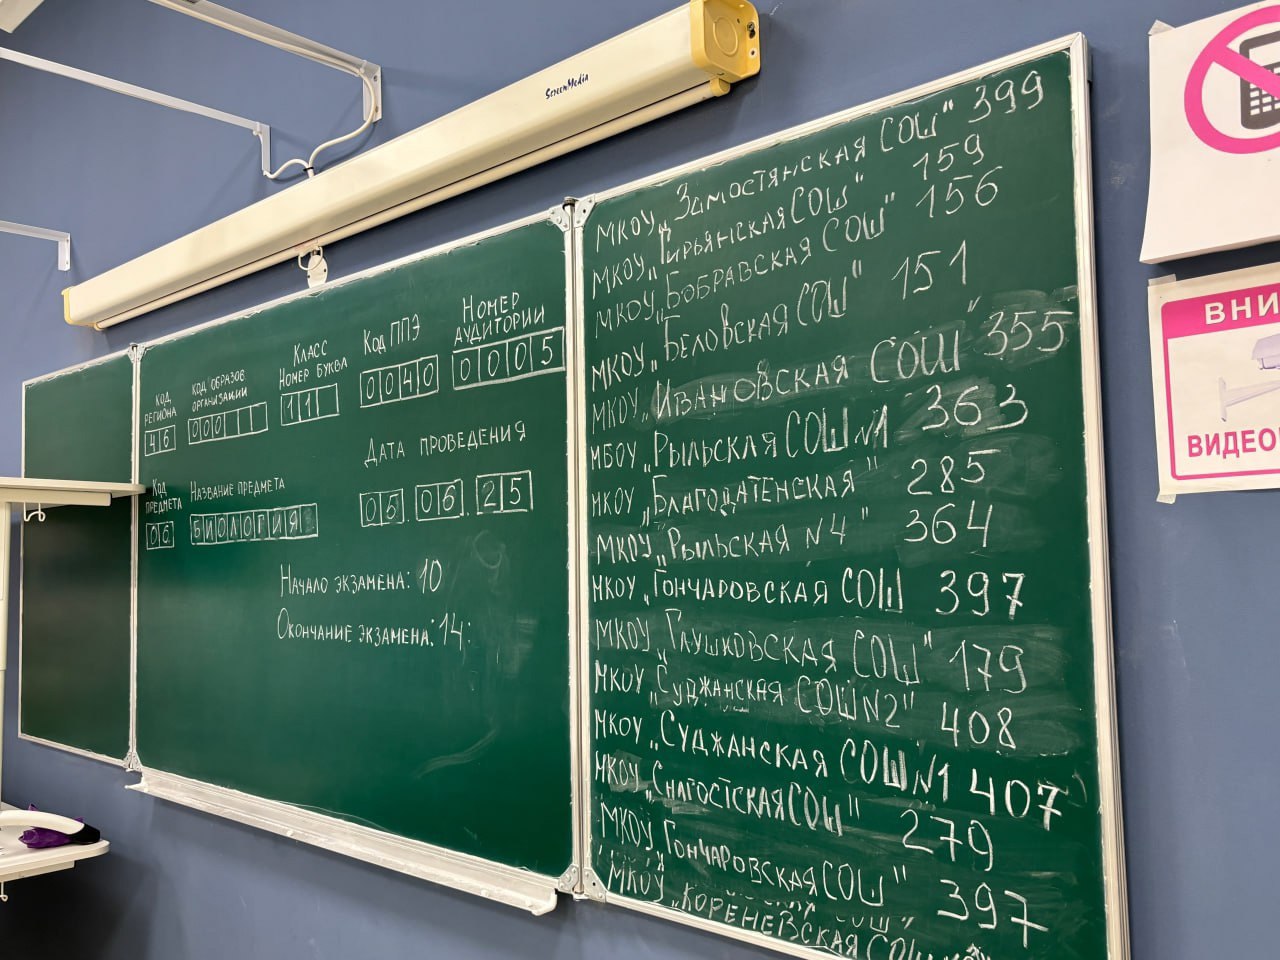 ScreenMedia
КОД РЕГИОНА
46
КОД ОБРАЗОВ ОРГАНИЗАЦИИ
000
КЛАСС
НОМЕР БУКВА
11
КОД ППЭ
0040
НОМЕР АУДИТОРИИ
0005
КОД ПРЕДМЕТА
06
НАЗВАНИЕ ПРЕДМЕТА
БИОЛОГИЯ
ДАТА ПРОВЕДЕНИЯ
05.06.25
НАЧАЛО ЭКЗАМЕНА: 10
ОКОНЧАНИЕ ЭКЗАМЕНА: 14:
МКОУ „Замостянская СОШ" 399
МКОУ „Гирьянская СОШ" 159
МКОУ „Бобравская СОШ" 156
МКОУ „Беловская СОШ" 151
МКОУ „Ивановская СОШ" 355
МБОУ „Рыльская СОШ N1 363
МКОУ „Благодатенская" 285
МКОУ „Рыльская N4" 364
МКОУ „Гончаровская СОШ 397
МКОУ „Глушковская СОШ" 179
МКОУ „Суджанская СОШ N2" 408
МКОУ „Суджанская СОШ N1 407
МКОУ „Снагостская СОШ" 279
МКОУ „Гончаровская СОШ" 397
МКОУ „Кореневская СОШ
ВНИ
ВИДЕО